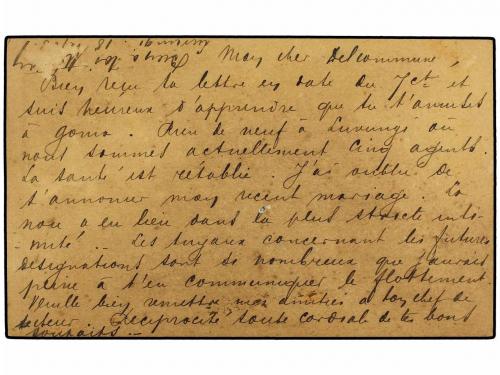 Mon cher Delcommune,
Bien reçu ta lettre en date du 7ct et
suis heureux d'apprendre que tu t'amuses
à Goma. Rien de neuf à Luvungi où
nous sommes actuellement cinq agents.
La santé est rétablie. J'ai oublié de
t'annoncer mon récent mariage. La
noce a eu lieu dans la plus stricte inti-
mité. — Les tuyaux concernant les futures
désignations sont si nombreux que j'aurais
peine à t'en communiquer le flottement.
Veuille bien remettre mes amitiés à ton chef de
secteur. Réciprocité toute cordiale de tes bons
souhaits. —